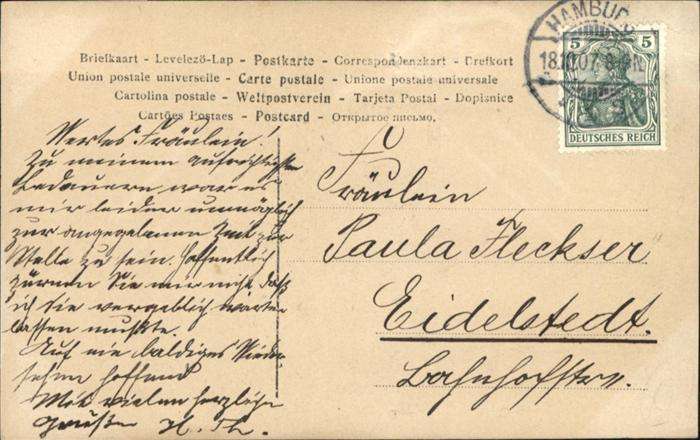 Briefkaart - Levelező-Lap - Postkarte - Correspondenzkart - Brefkort
Union postale universelle - Carte postale - Unione postale universale
Cartolina postale - Weltpostverein - Tarjeta Postal - Dopisnice
Cartões Postaes - Postcard - Открытое письмо.
HAMBURG
18.10.07. 8-9N.
5 5
DEUTSCHES REICH
Wertes Fräulein!
Zu meinem aufrichtigsten
Bedauern war es
mir leider unmöglich
zur angegebenen Zeit zur
Stelle zu sein. Hoffentlich
zürnen Sie mir nicht daß
ich Sie vergeblich warten
lassen mußte.
Auf ein baldiges Wieder-
sehen hoffend
Mit vielen herzlichen
Grüßen H. Th.
Fräulein
Paula Fleckser
Eidelstedt.
Bahnhofstr.